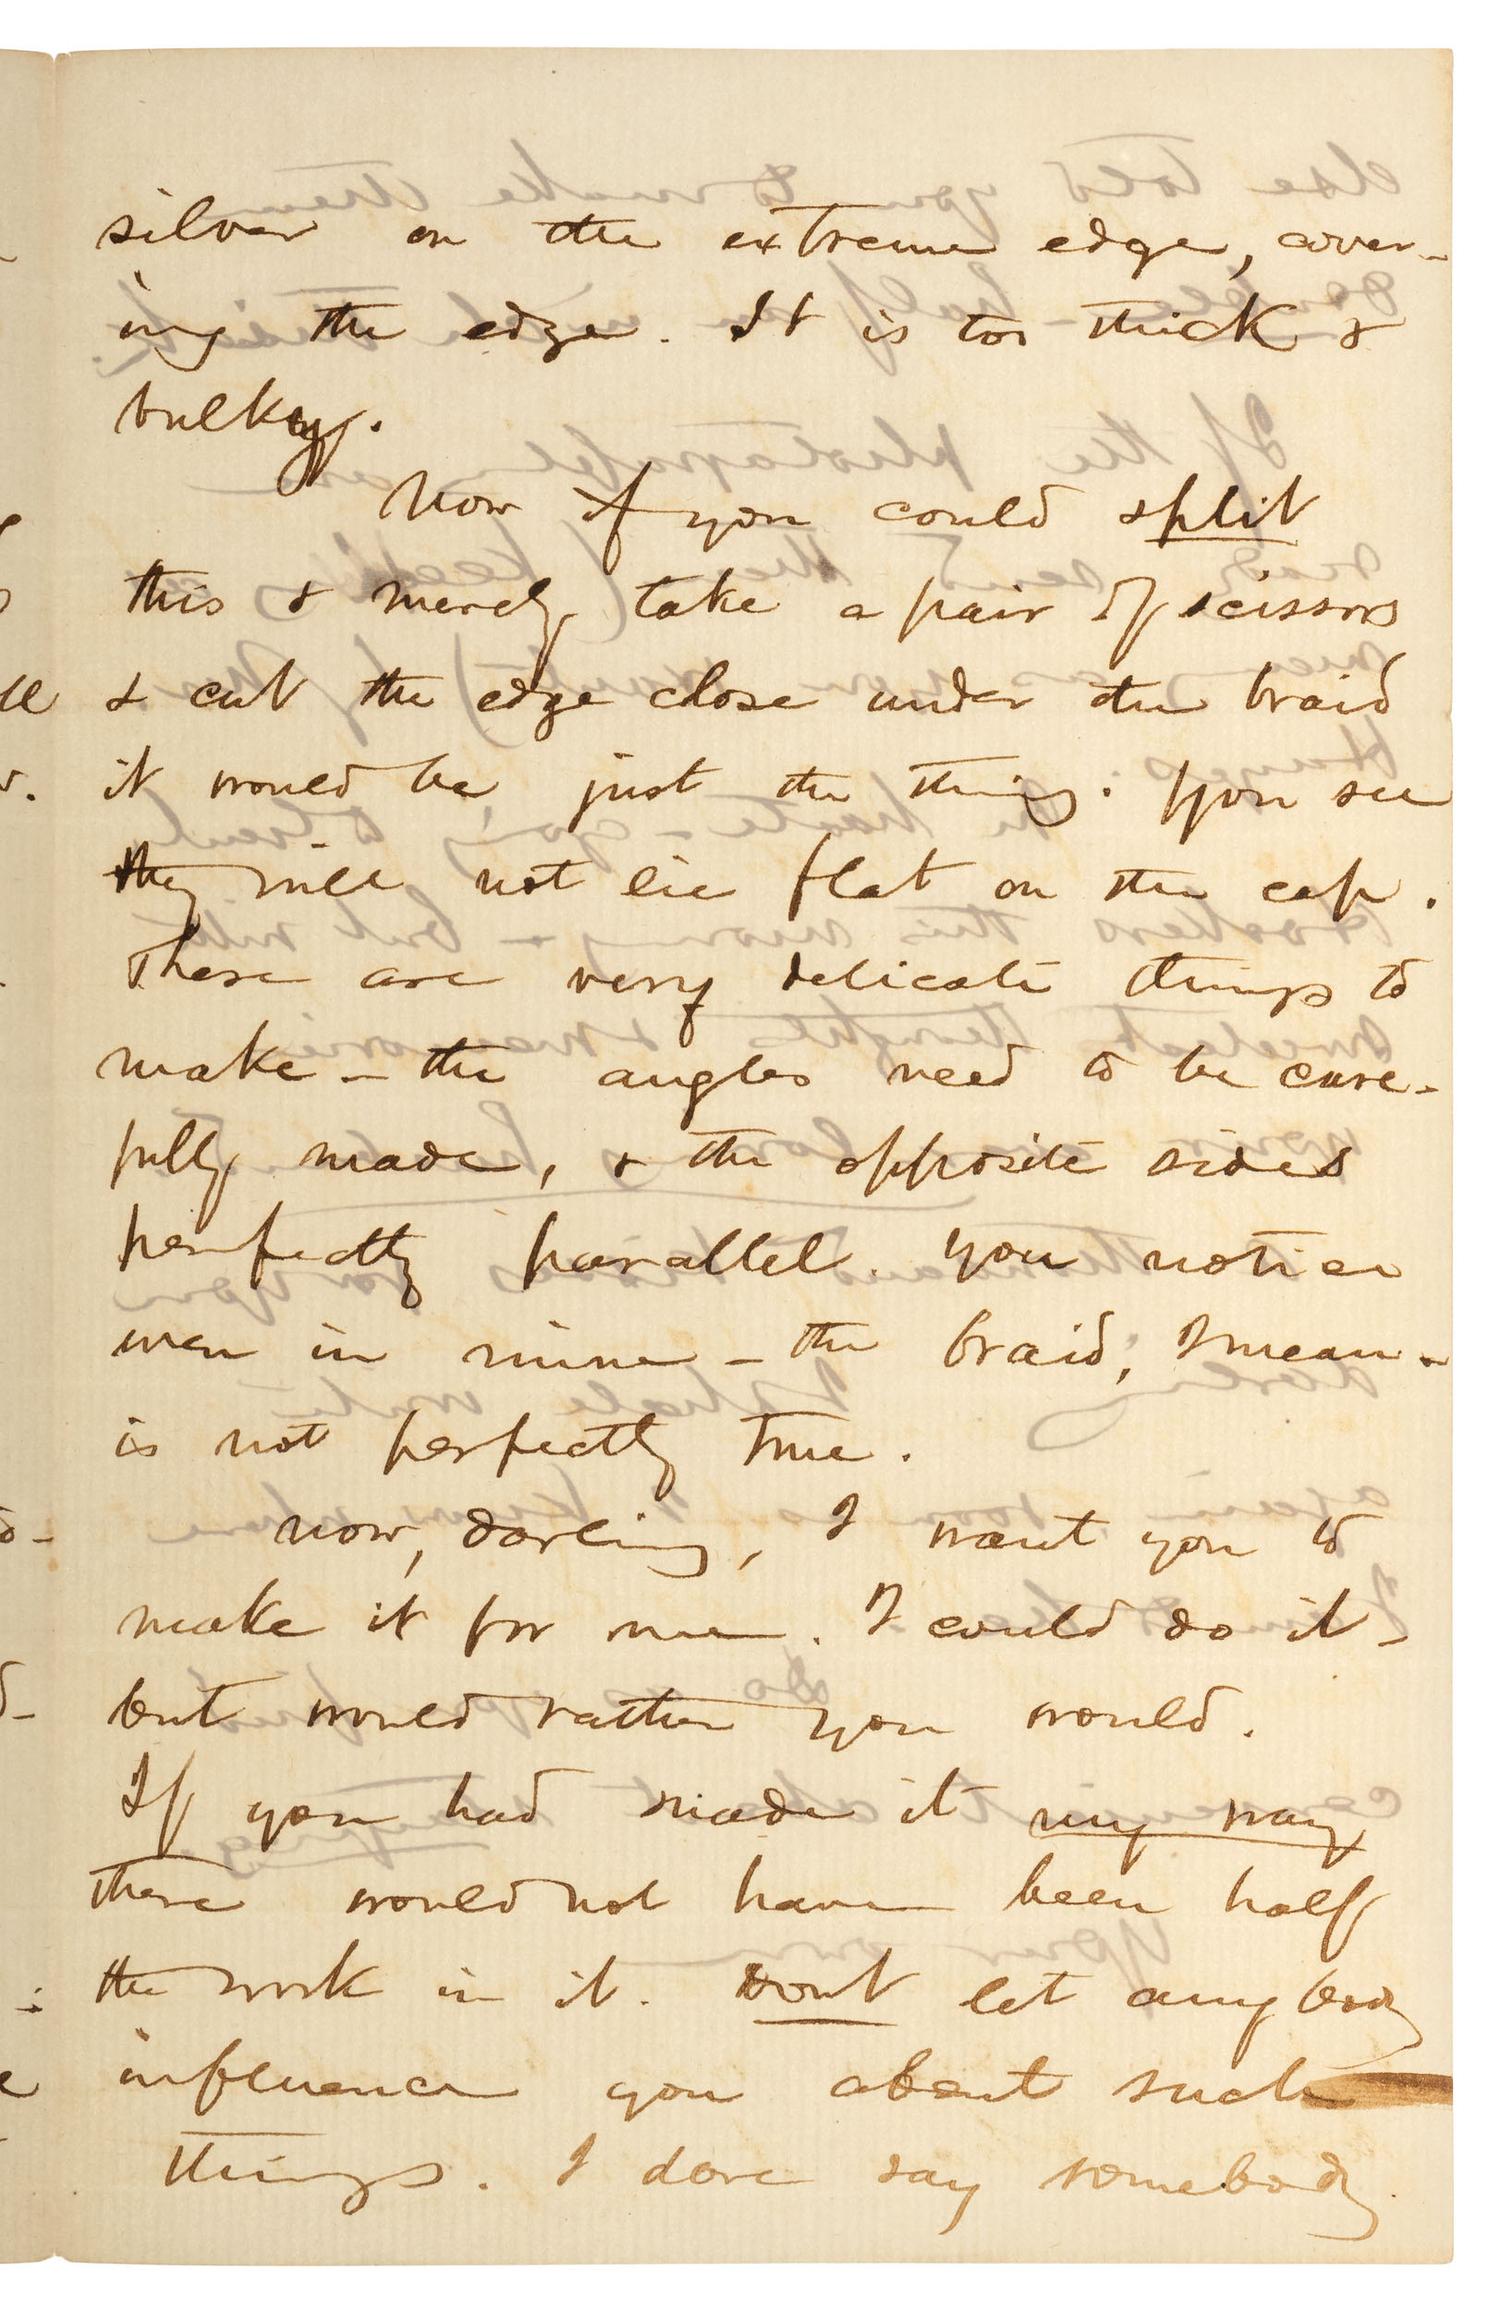 silver on the extreme edge, cover-
ing the edge. It is too thick &
bulky.
Now if you could split
this & merely take a pair of scissors
& cut the edge close under the braid
it would be just the thing. You see
they will not lie flat on the cap.
These are very delicate things to
make - the angles need to be care-
fully made, & the opposite sides
perfectly parallel. You notice
even in mine - the braid, I mean -
is not perfectly true.
Now, darling, I want you to
make it for me. I could do it -
but would rather you would.
If you had made it my way
there would not have been half
the work in it. Dont let anybody
influence you about such
things. I dare say somebody